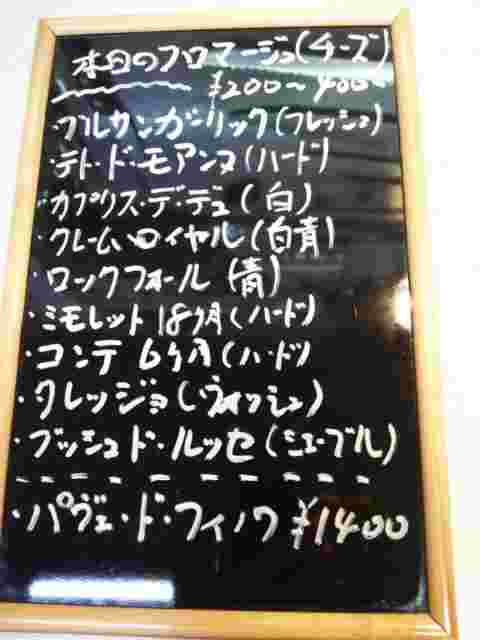 本日のフロマージュ(チーズ)
¥200〜400
・ブルサンガーリック(フレッシュ)
・テト・ド・モアンヌ(ハード)
・カプリス・デ・デュ(白)
・クレームロイヤル(白青)
・ロックフォール(青)
・ミモレット18ヶ月(ハード)
・コンテ 6ヶ月(ハード)
・タレッジョ(ウォッシュ)
・ブッシュド・ルッセ(シェーブル)
・パヴェ・ド・フィノワ ¥1400